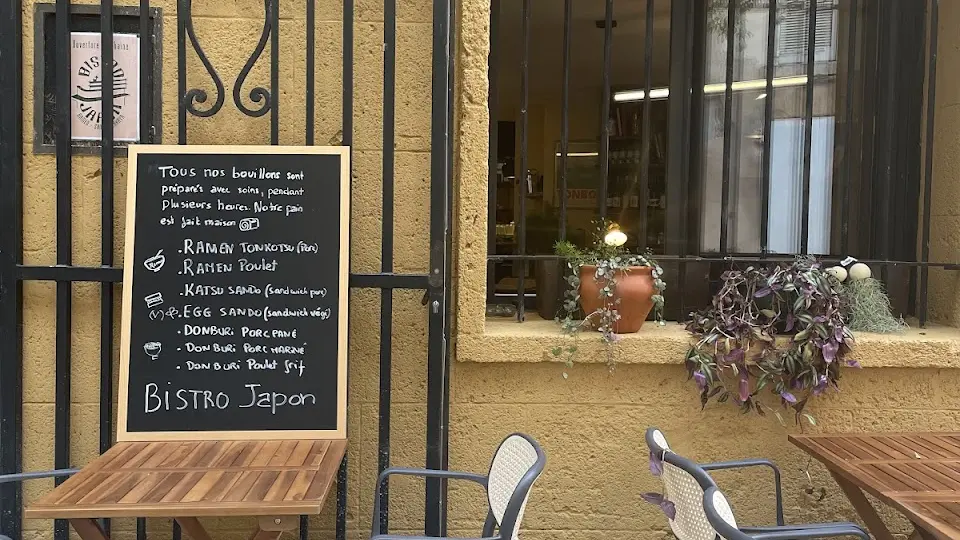 Ouverture
BISTRO
JAPON
TOUS nos bouillons sont
préparés avec soins, pendant
plusieurs heures. Notre pain
est fait maison
. RAMEN TONKOTSU (Porc)
. RAMEN Poulet
. KATSU SANDO (sandwich porc)
. EGG SANDO (sandwich végé)
. DONBURI PORC PANÉ
. DONBURI PORC MARINÉ
. DONBURI Poulet frit
BISTRO Japon